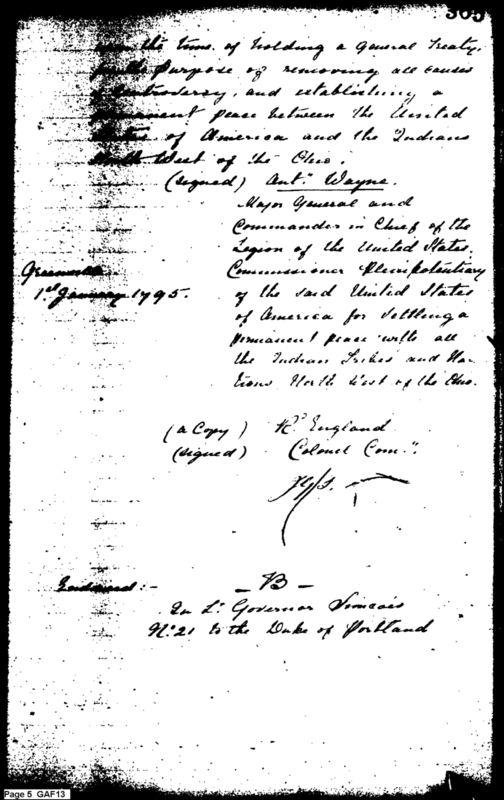 365
upon the time of holding a General Treaty,
for the purpose of removing all causes
of controversy, and establishing a
permanent peace between the United
States of America and the Indians
North West of the Ohio.
(signed) Ant.y Wayne.
Major General and
Commander in Chief of the
Legion of the United States.
Greenville
Commissioner Plenipotentiary
1st January 1795.
of the said United States
of America for settling a
permanent peace with all
the Indian Tribes and Na-
tions North West of the Ohio.
(a Copy) Rd England
(signed) Colonel Com.
Endorsed:-
- B -
In Lt Governor Simcoe's
No 21 to the Duke of Portland
Page 5 GAF13